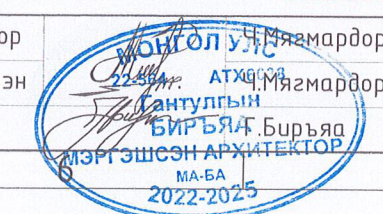 ор
Ч.Мягмардор
эн
Ч.Мягмардор
Г.Биръяа
6
МОНГОЛ УЛС
22-564
Гантулгын
БИРЪЯА
МЭРГЭШСЭН АРХИТЕКТОР
МА-БА
2022-2025